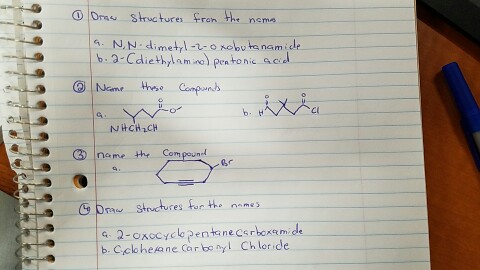 ① Draw Structures from the names
a. N,N-dimetyl-2-oxobutanamide
b. 2-(diethylamino)pentonic acid
② Name these Compounds
a. O O b. O H O Cl
NHCH2CH
③ name the Compound
a. Br
④ Draw structures for the names
a. 2-oxocyclopentanecarboxamide
b. Cyclohexane Carbonyl Chloride